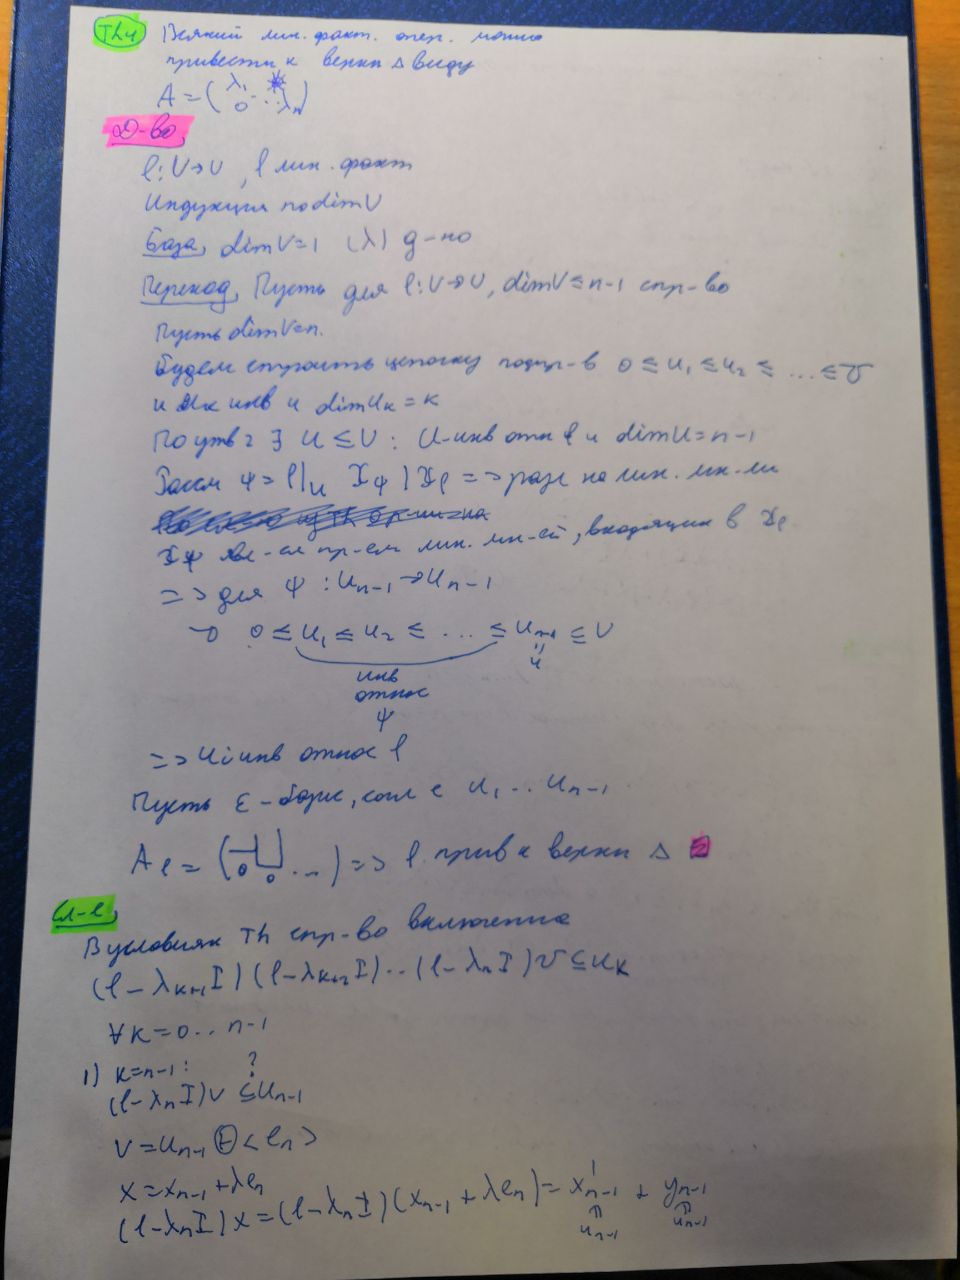 Th4 Всякий лин. факт. опер. можно
привести к верхн Δ виду
A = (λ₁ * 0 ⋱ λₙ)
Д-во,
φ: V→V, φ лин. факт
Индукция по dim V
База, dim V=1 (λ) д-но
Переход, Пусть для φ: V→V, dim V ≤ n-1 спр-во
Пусть dim V=n.
Будем строить цепочку подпр-в 0 ≤ U₁ ≤ U₂ ≤ ... ≤ V
и Uₖ инв и dim Uₖ = k
По утв 2 ∃ U ≤ V : U-инв отн φ и dim U = n-1
ψ = φ|ᵤ χψ | χφ => разл на лин. мн-ли
χψ явл-ся пр-ем лин. мн-ей, входящих в χφ
=> для ψ : Uₙ₋₁ → Uₙ₋₁
0 ≤ U₁ ≤ U₂ ≤ ... ≤ Uₙ₋₁ ≤ V
U
инв
относ
ψ
=> Uᵢ инв относ φ
Пусть ε - базис, согл с U₁ .. Uₙ₋₁
Aφ = ( 0 0 ... ) => φ прив к верхн Δ
Сл-е,
В условиях Th спр-во включение
(φ - λₖ₊₁I)(φ - λₖ₊₂I)..(φ - λₙI)V ⊆ Uₖ
∀k = 0 .. n-1
1) k=n-1: ?
(φ - λₙI)V ⊆ Uₙ₋₁
V = Uₙ₋₁ ⊕ <eₙ>
x = xₙ₋₁ + λeₙ
(φ - λₙI)x = (φ - λₙI)(xₙ₋₁ + λeₙ) = x'ₙ₋₁ + yₙ₋₁
Uₙ₋₁ Uₙ₋₁